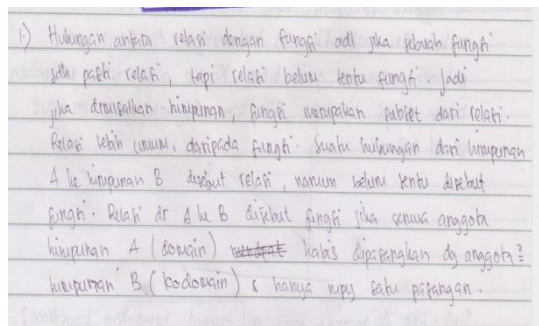 1.) Hubungan antara relasi dengan fungsi adl jika sebuah fungsi
sdh pasti relasi, tapi relasi belum tentu fungsi. Jadi
jika dimisalkan himpunan, fungsi merupakan subset dari relasi.
Relasi lebih umum, daripada fungsi. Suatu hubungan dari himpunan
A ke himpunan B disebut relasi, namun belum tentu disebut
fungsi. Relasi dr A ke B disebut fungsi jika semua anggota
himpunan A (domain) habis dipasangkan dg anggota²
himpunan B (kodomain) & hanya mpy satu pasangan.